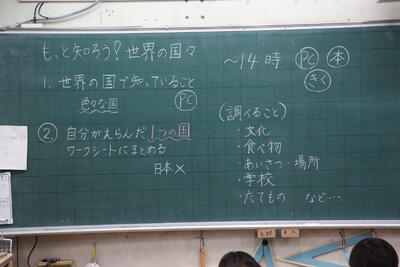 もっと知ろう？世界の国々
1. 世界の国で知っていること
色々な国
PC
② 自分がえらんだ1つの国
ワークシートにまとめる
日本×
〜14時 PC 本
きく
（調べること）
・文化
・食べ物
・あいさつ・場所
・学校
・たてもの など…